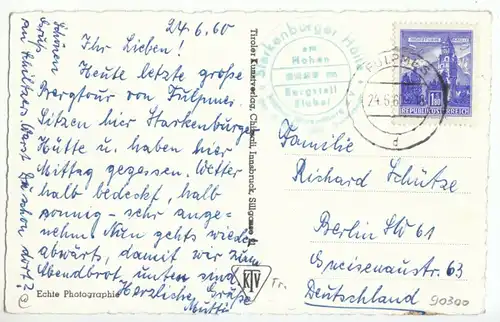 24.6.60
Ihr Lieben!
Heute letzte große
Bergtour von Fulpmes.
Sitzen hier Starkenburger
Hütte u. haben hier
Mittag gegessen. Wetter
halb bedeckt, halb
sonnig - sehr ange-
nehm. Nun gehts wieder
abwärts, damit wir zum
Abendbrot unten sind.
Herzliche Grüße
Mutti
Schönen
Gruß
an Horst
schon dort?
Echte Photographie
Tiroler Kunstverlag, Chizzali, Innsbruck, Sillgasse
KTV
Tr.
Starkenburger Hütte
am
Hohen
Burgstall
Stubai
FULPMES
24.6.60
d
REPUBLIK ÖSTERREICH
Familie
Richard Schütze
Berlin SW 61
Gneisenaustr. 63
Deutschland
90300